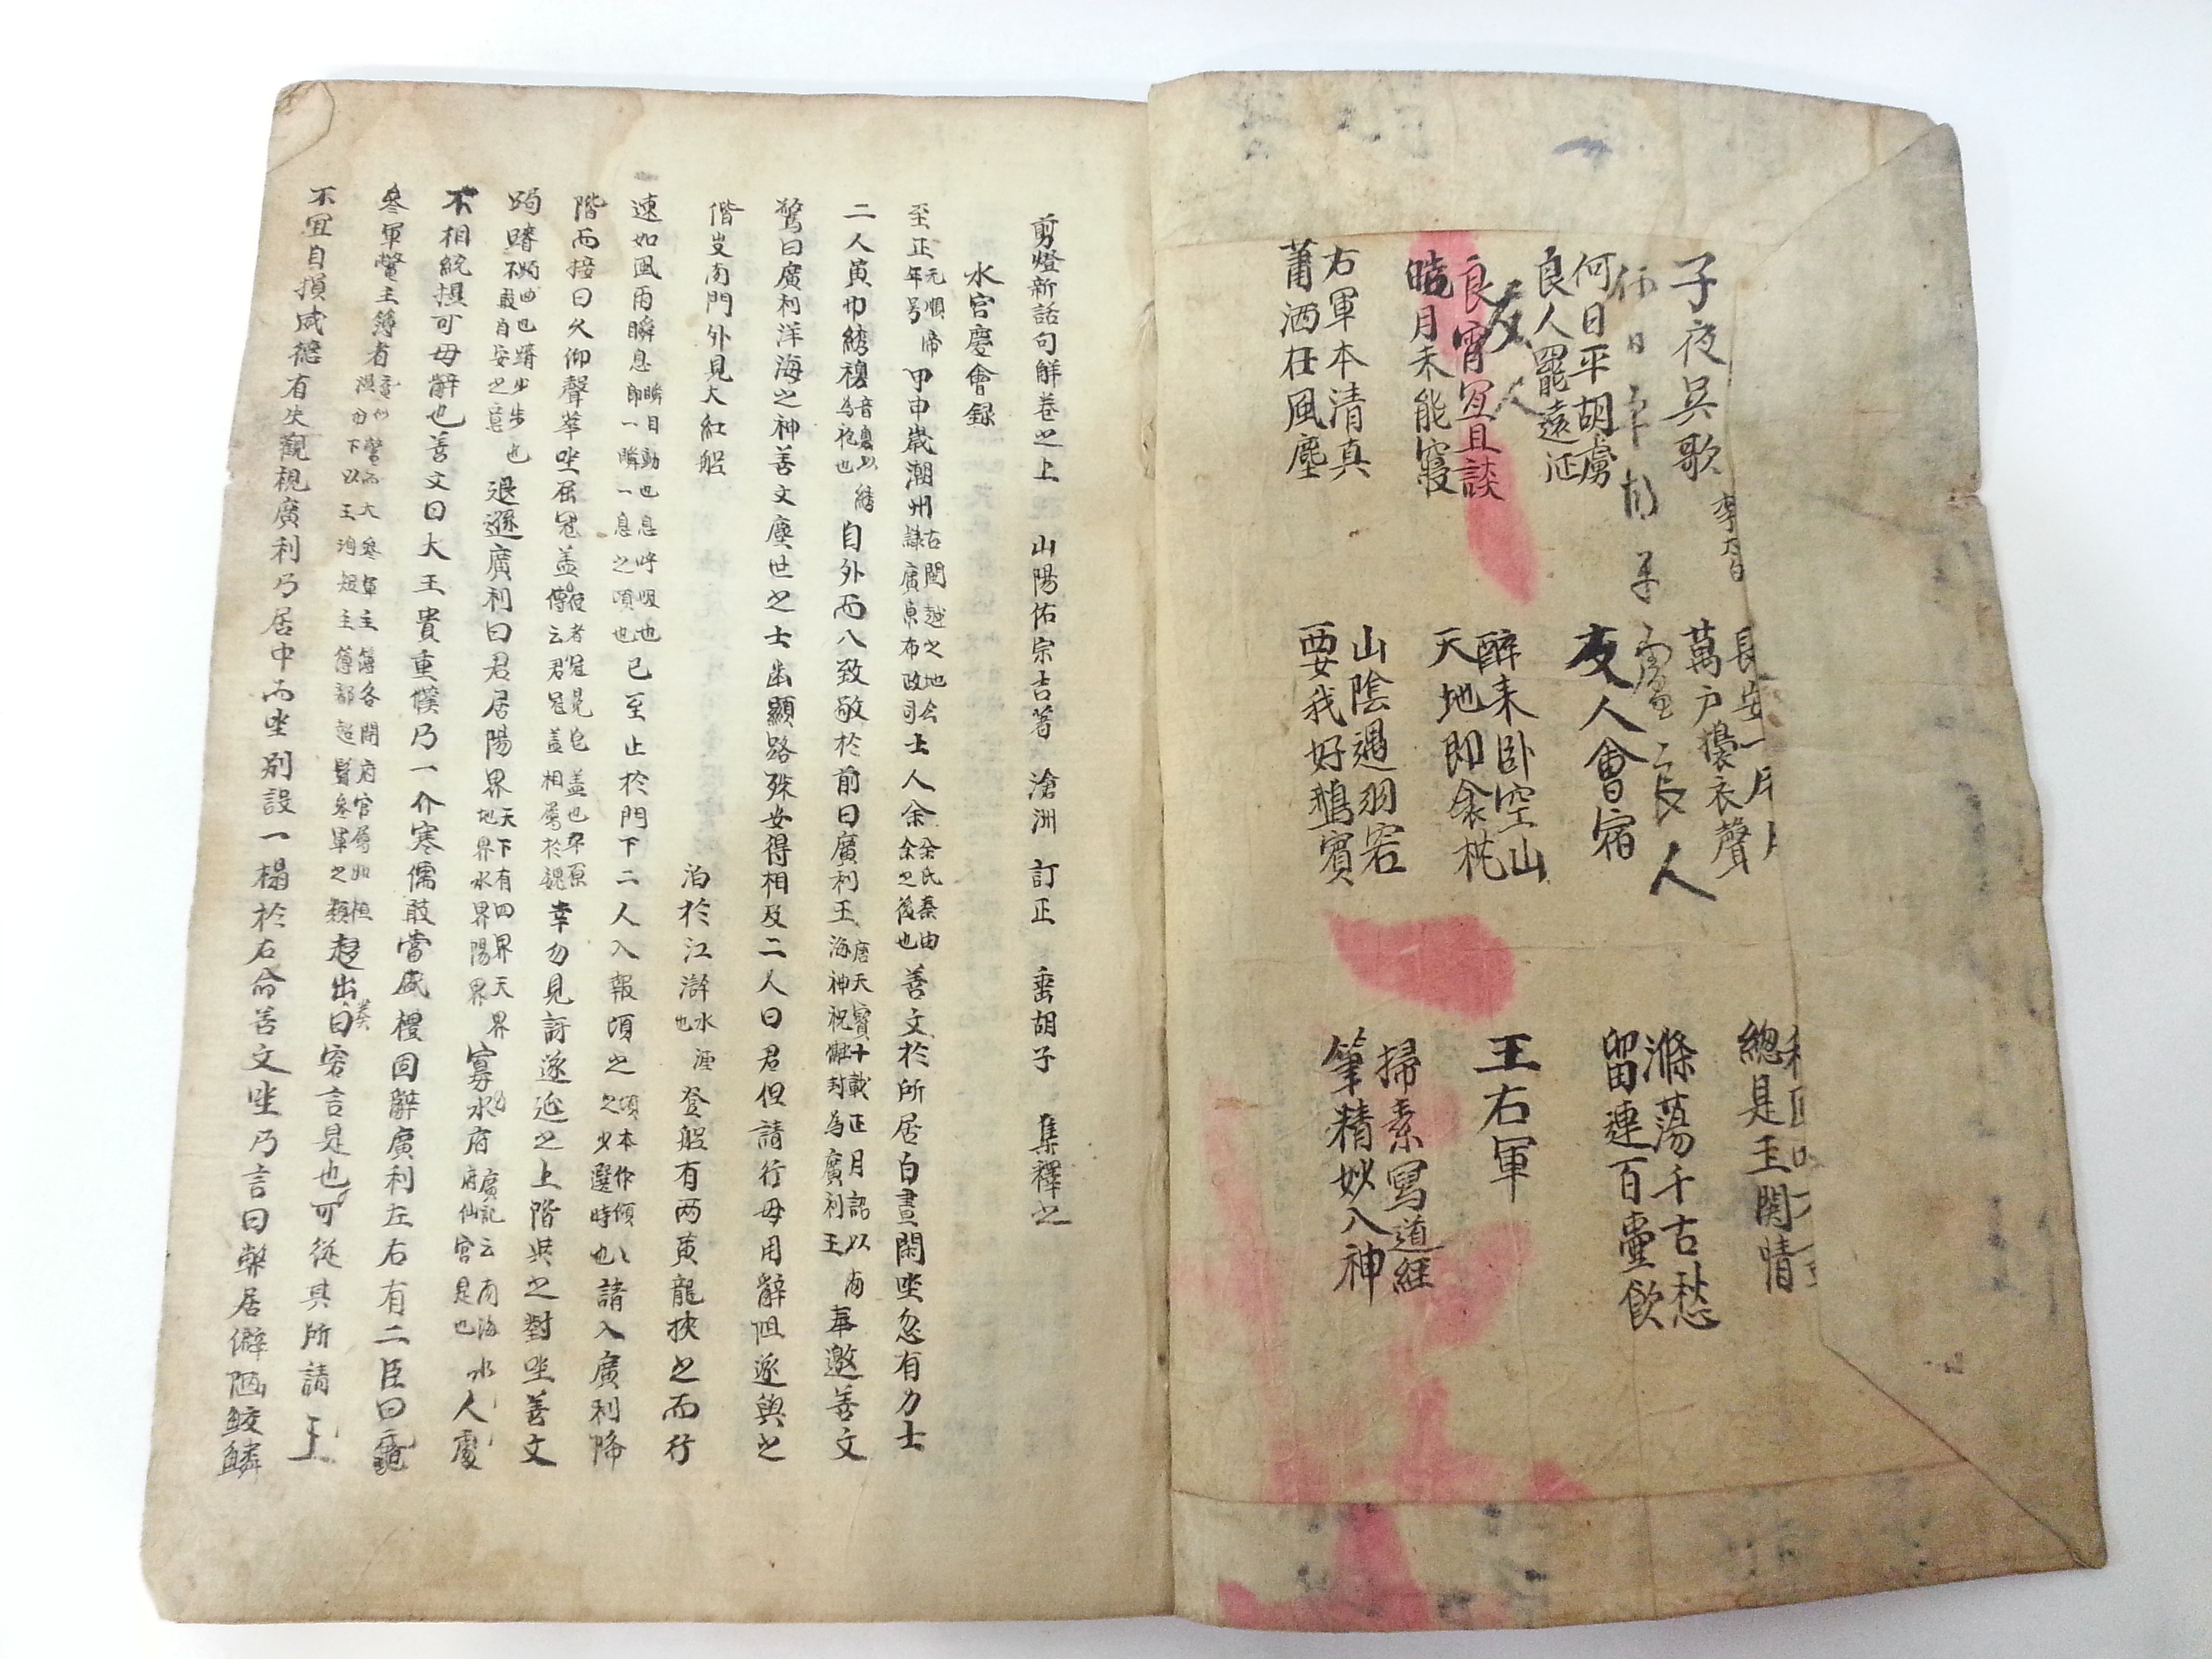 子夜吳歌 李太白
長安一片月
萬戶擣衣聲
總是玉関情
何日平胡虜
良人罷遠征
友人會宿
滌蕩千古愁
留連百壷飲
良宵冝且談
皓月未能寢
醉来卧空山
天地即衾枕
王右軍
右軍本清真
蕭洒在風塵
山陰遇羽客
要我好鵝賓
掃素冩道經
筆精妙入神
友人
良人
剪燈新話句解卷之上 山陽佑宗吉著 滄洲 訂正 垂胡子 集釋之
水宮慶會録
至正元順帝年号甲申歲潮州古閩越之地今隷廣東布政司士人余余氏秦由余之後也善文於所居白晝閑坐忽有力士
二人黃巾綉襖音奧以綉為袍也自外而入致敬於前曰廣利王唐天寶十載正月詔以南海神祝融封為廣利王奉邀善文
驚曰廣利洋海之神善文塵世之士幽顯路殊安得相及二人曰君但請行毋用辭阻遂與之
偕出南門外見大紅舩泊於江滸水涯也登舩有两黃龍挾之而行
速如風雨瞬息瞬目動也息呼吸也即一瞬一息之頃也已至止於門下二人入報頃之頃本作傾〻之少選時也請入廣利降
階而接曰久仰聲華坐屈冠盖使者冠冕皂盖也平原傳云君冠盖相屬於魏幸勿見訝遂延之上階與之對坐善文
跼蹐跼曲也蹐少步也不敢自安之意退遜廣利曰君居陽界天下有四界天界地界水界陽界寡人處水府廣記云南海水府仙宮是也
不相統攝可毋辭也善文曰大王貴重僕乃一介寒儒敢當盛禮固辭廣利左右有二臣曰黿
叅軍鱉主簿者黿似鱉而大叅軍主簿各開府官属如桓温府下以王珣超主簿郗超髯叅軍之類趍出奏曰客言是也可從其所請王
不宜自損威德有失觀視廣利乃居中而坐別設一榻於右命善文坐乃言曰弊居僻陋蛟鱗